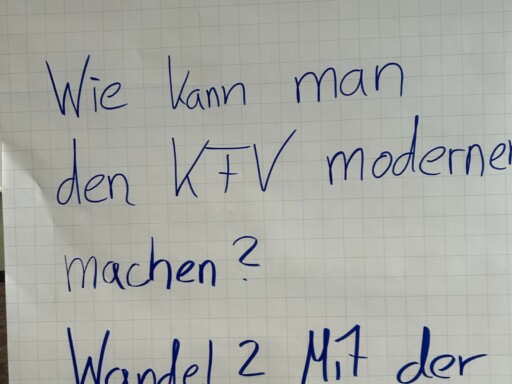 Wie kann man
den KTV moderner
machen?
Wandel? Mit der